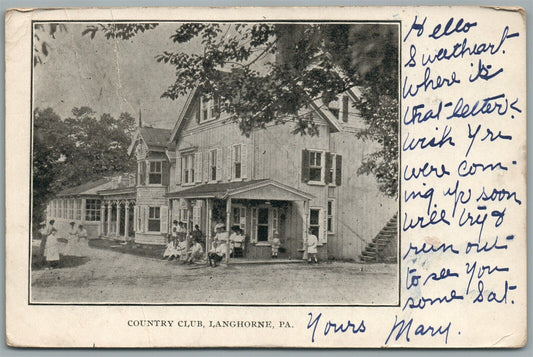 Hello
Sweetheart
Where is
that letter
Wish Yu
were com-
ing up soon
will try &
run out
to see You
some Sat.
Yours Mary.
COUNTRY CLUB, LANGHORNE, PA.